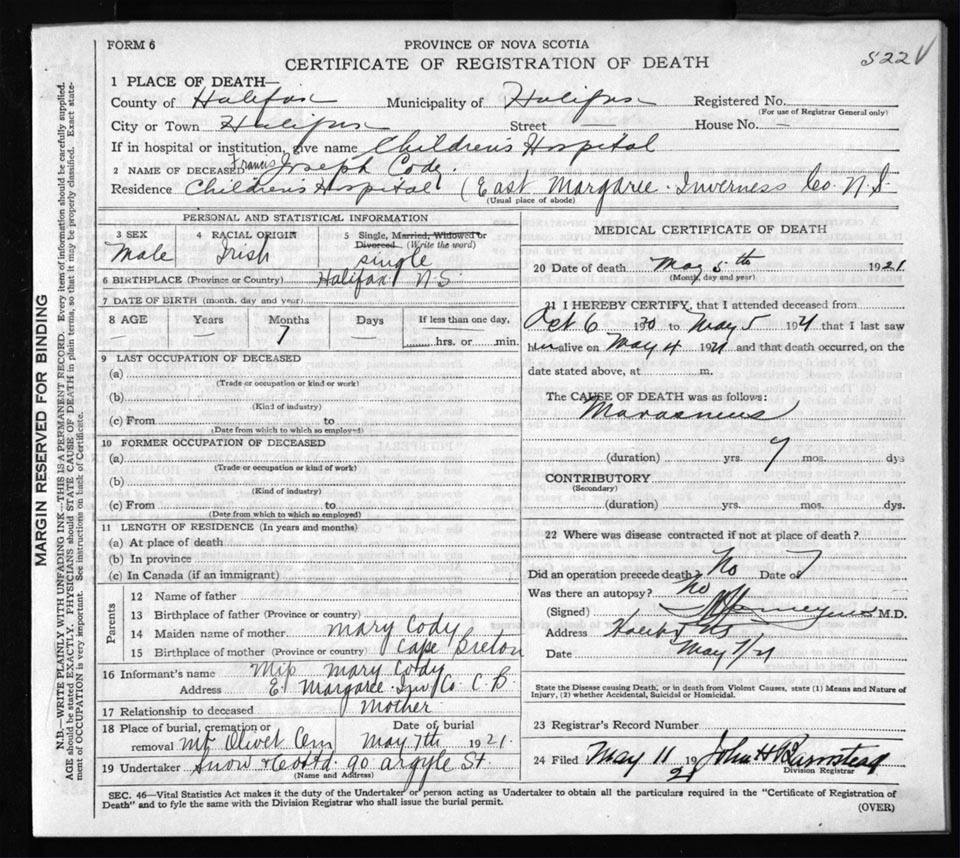 FORM 6
PROVINCE OF NOVA SCOTIA
CERTIFICATE OF REGISTRATION OF DEATH
522 V
1 PLACE OF DEATH—
County of Halifax Municipality of Halifax Registered No.
(For use of Registrar General only)
City or Town Halifax Street — House No. —
If in hospital or institution, give name Children's Hospital
2 NAME OF DECEASED Francis Joseph Cody.
Residence Children's Hospital (East Margaree. Inverness Co. N.S.
(Usual place of abode)
MARGIN RESERVED FOR BINDING
N.B.—WRITE PLAINLY WITH UNFADING INK—THIS IS A PERMANENT RECORD. Every item of information should be carefully supplied.
AGE should be stated EXACTLY. PHYSICIANS should STATE CAUSE OF DEATH in plain terms, so that it may be properly classified. Exact state-
ment of OCCUPATION is very important. See instructions on back of Certificate.
PERSONAL AND STATISTICAL INFORMATION
3 SEX
Male
4 RACIAL ORIGIN
Irish
5 Single, Married, Widowed or
Divorced. (Write the word)
single
6 BIRTHPLACE (Province or Country) Halifax N S
7 DATE OF BIRTH (month, day and year)
8 AGE Years Months Days If less than one day,
— — 7 — hrs. or min.
9 LAST OCCUPATION OF DECEASED
(a)
(Trade or occupation or kind or work)
(b)
(Kind of industry)
(c) From to
(Date from which to which so employed)
10 FORMER OCCUPATION OF DECEASED
(a)
(Trade or occupation or kind of work)
(b)
(Kind of industry)
(c) From to
(Date from which to which so employed)
11 LENGTH OF RESIDENCE (In years and months)
(a) At place of death
(b) In province
(c) In Canada (if an immigrant)
Parents
12 Name of father
13 Birthplace of father (Province or country)
14 Maiden name of mother Mary Cody
15 Birthplace of mother (Province or country) Cape Breton
16 Informant's name Miss Mary Cody
Address E. Margaree Inv Co. C. B.
17 Relationship to deceased Mother
18 Place of burial, cremation or Date of burial
removal Mt Olivet Cem May 7th 1921.
19 Undertaker Snow & Co Ltd 90 Argyle St.
(Name and Address)
MEDICAL CERTIFICATE OF DEATH
20 Date of death May 5th 1921
(Month, day and year)
21 I HEREBY CERTIFY, that I attended deceased from
Oct 6 1920 to May 5 1921 that I last saw
him alive on May 4 1921 and that death occurred, on the
date stated above, at m.
The CAUSE OF DEATH was as follows:
Marasmus
(duration) yrs. 7 mos. dys
CONTRIBUTORY
(Secondary)
(duration) yrs. mos. dys.
22 Where was disease contracted if not at place of death?
Did an operation precede death? No Date of
Was there an autopsy? No
(Signed) M.D.
Address Halifax NS
Date May 7/21
State the Disease causing Death, or in death from Violent Causes, state (1) Means and Nature of
Injury, (2) whether Accidental, Suicidal or Homicidal.
23 Registrar's Record Number
24 Filed May 11 1921 John H Barnstead
Division Registrar
SEC. 46—Vital Statistics Act makes it the duty of the Undertaker or person acting as Undertaker to obtain all the particulars required in the "Certificate of Registration of
Death" and to fyle the same with the Division Registrar who shall issue the burial permit.
(OVER)